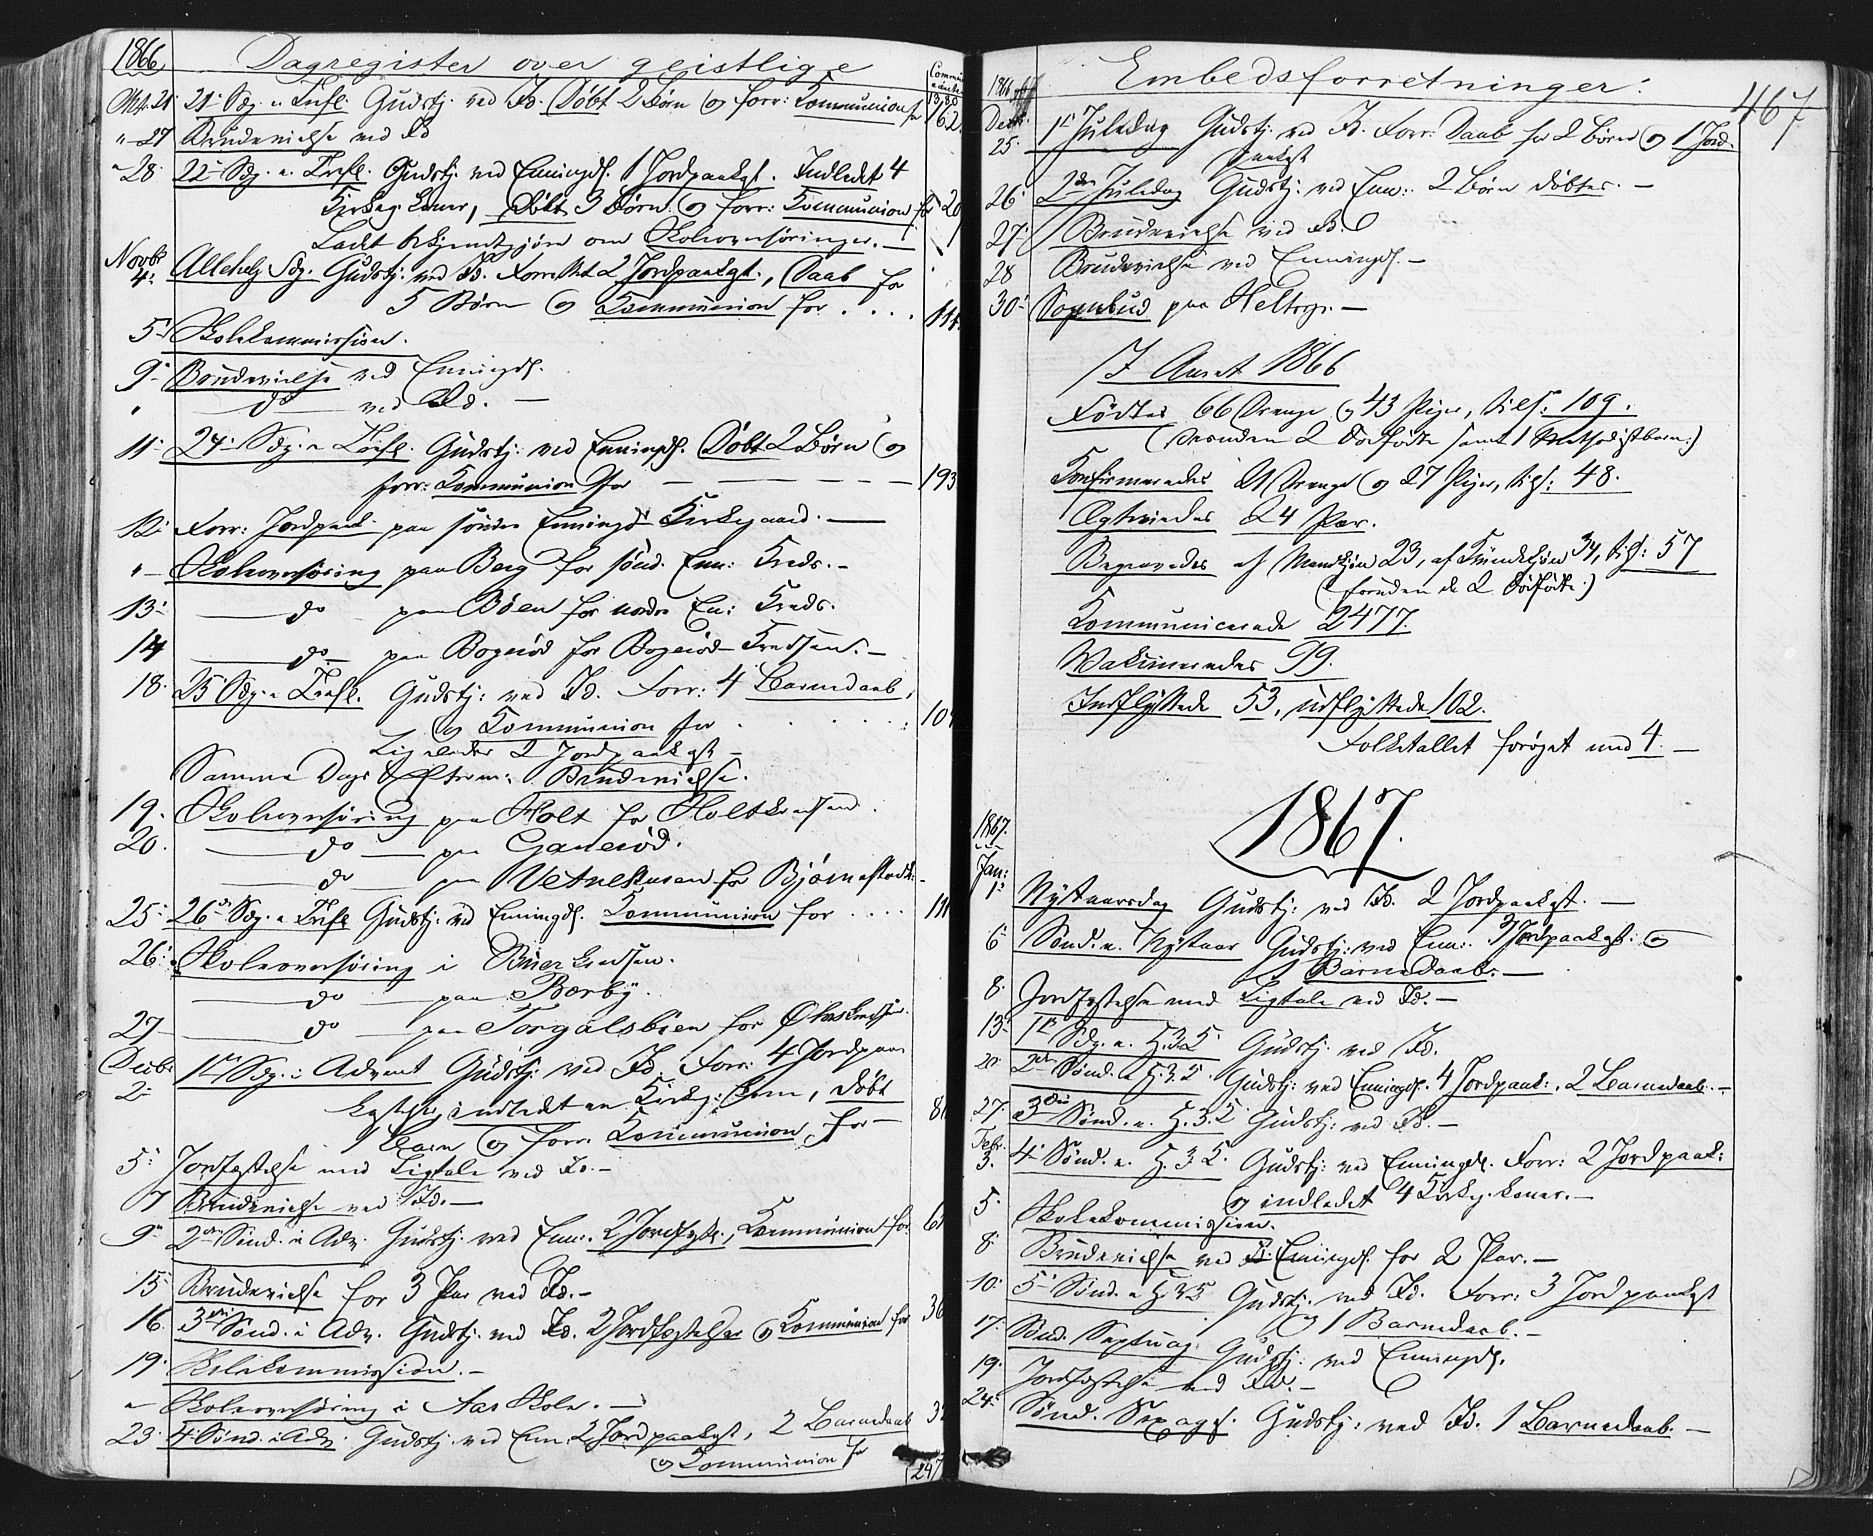 1866
Dagregister over geistlige
Communicanter
1380
Okt. 21. 21. Sdg. e. Trefl. Gudstj. ved Id. Døbt 2 Børn og forr: Kommunion for 162
" 27 Brudevielse ved Id
" 28. 22. Sdg. e. Trefl. Gudstj. ved Enningd. 1 Jordpaakst. Indledet 4
Kirkeg. Koner, Døbt 3 Børn og forr: Kommunion for 20
Ladt bekjendtgjøre om Skoleoverhøringer.
Novbr 4. Allehelg. Sdg. Gudstj. ved Id. Forrettet 2 Jordpaakst., Daab for
5 Børn og Kommunion for . . . . 111
5 Skolekommission.
9 Brudevielse ved Enningd.
" do ved Id. —
11. 24. Sdg. e. Trefl. Gudstj. ved Enningd. Døbt 2 Børn og
forr: Kommunion for — — — 193
12. Forr: Jordpaak. paa søndre Enningd. Kirkegaard. —
" Skoleoverhøring paa Berg for sønd. Enn: Kreds. —
13. do paa Bøen for nordre En: Kreds.
14 do paa Bogerød for Bogerød Kredsen. —
18. 25. Sdg. e. Trefl. Gudstj: ved Id. Forr: 4 Barnedaab,
og Kommunion for . . . . 10
Ligeledes 2 Jordpaakst —
Samme Dags Efterm: Brudevielse.
19. Skoleoverhøring paa Holt for Holtkredsen.
20. do paa Ganerød.
do paa Vetnekasen for Bjørnestad
25. 26. Sdg. e. Trefl Gudstj. ved Enningd. Kommunion for . . . . 111
26. Skoleoverhøring i Buer Kredsen.
do paa Bærby.
27 do paa Torgalsbøen for
Decbr 2. 1ste Sdg. i Advent Gudstj: ved Id. Forr: 4 Jordpaa
kastelse, indledet en Kirkeg: Kone, døbt
1 Barn og forr. Kommunion for 8
5. Jordfæstelse med Ligtale ved Id. —
7 Brudevielse ved Id. —
9. 2den Sønd. i Adv. Gudstj. ved Enn:. 2 Jordfæst., Kommunion for 6
15 Brudevielse for 3 Par ved Id. —
16. 3die Sønd. i Adv. Gudstj. ved Id. 2 Jordfæstelser og Kommunion for 36
19. Skolekommission. —
" Skoleoverhøring i Aas Skole. —
23. 4. Sønd. i Adv. Gudstj. ved Enn: 2 Jordpaakst, 2 Barnedaab 3
og Kommunion for
247
Embedsforretninger:
467
1866
Decbr. 25. 1ste Juledag Gudstj: ved Id. Forr: Daab for 2 Børn og 1 Jord
paakst
26. 2den Juledag Gudstj: ved Enn:. 2 Børn døbtes. —
27. Brudevielse ved Id.
28 Brudevielse ved Enningd. —
30. Sognebud paa Heltorp. —
I Aaret 1866
Fødtes 66 Drenge og 43 Piger, tils: 109.
(desuden 2 Dødfødte samt 1 Methodistbarn.)
Konfirmeredes 21 Drenge og 27 Piger, tils: 48.
Ægteviedes 24 Par.
Begravedes af Mandkjøn 23, af Kvindekjøn 34, tils: 57
(foruden de 2 Dødfødte.)
Kommunicerede 2477.
Vakcineredes 99.
Indflyttede 53, udflyttede 102.
Folketallet forøget med 4. —
1867.
1867.
Jan: 1. Nytaarsdag Gudstj: ved Id. 2 Jordpaakst. —
6. Sønd. e. Nytaar Gudstj: ved Enn:. 3 Jordpaakst: og
1 Barnedaab. —
8. Jordfæstelse med Ligtale ved Id. —
13. 1ste Sdg. e. H.3.K. Gudstj: ved Id.
20. 2den Sønd. e. H.3.K. Gudstj: ved Enningd. 4 Jordpaak:, 2 Barnedaab. —
27. 3die Sønd. e. H.3.K. Gudstj: ved Id. —
Febr. 3. 4. Sønd. e. H.3.K. Gudstj: ved Enningd. Forr: 2 Jordpaak:
og indledet 4 Kirkeg. koner. —
5. Skolekommission.
8. Brudevielse ved Enningd. for 2 Par. —
10. 5. Sønd. e. H.3.K Gudstj. ved Id. Forr: 3 Jordpaakst
og 1 Barnedaab. —
17. Sønd. Septuag. Gudstj: ved Enningd.
19. Jordfæstelse ved Id. —
24. Sønd. Sexages. Gudstj: ved Id. 1 Barnedaab. —